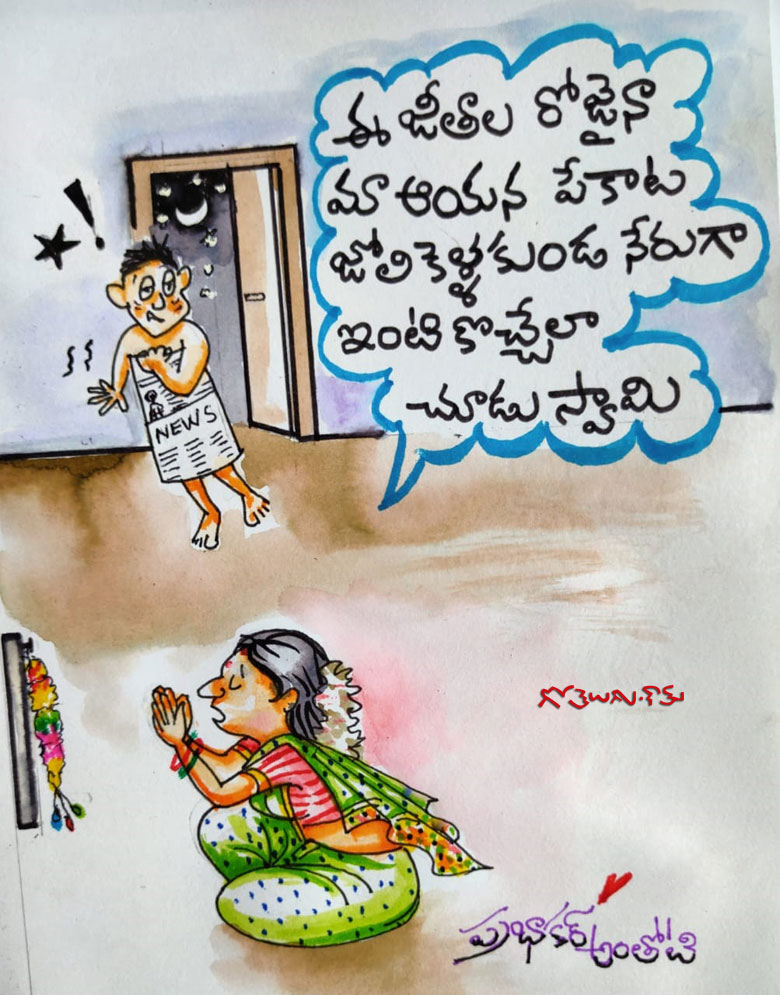 ఈ జీతాల రోజైనా
మా ఆయన పేకాట
జోలికెళ్ళకుండ నేరుగా
ఇంటి కొచ్చేలా
చూడు స్వామి
NEWS
గోతెలుగు.కామ్
ప్రభాకర్ అంతోటి